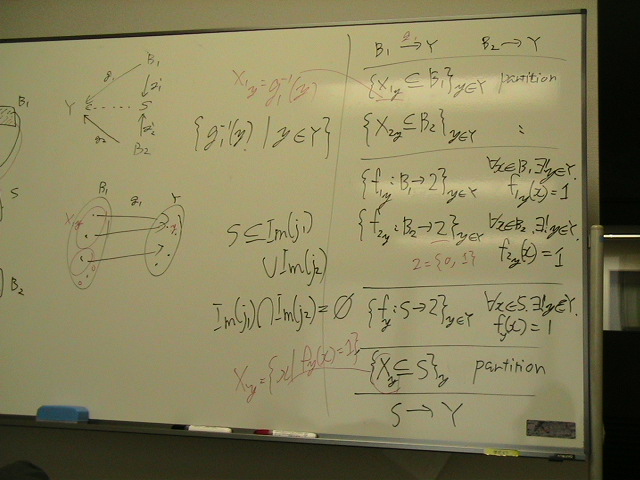 B₁
S
B₂
B₁
g₁
j₁
Y S
g₂ j₂
B₂
B₁ g₁ Y
X₁y
X₁y = g₁⁻¹(y)
{g₁⁻¹(y) | y∈Y}
S ⊆ Im(j₁)
∪ Im(j₂)
Im(j₁) ∩ Im(j₂) = ∅
X_y = {x | f_y(x) = 1}
B₁ →^{g₁} Y B₂ → Y
{X₁y ⊆ B₁}_{y∈Y} partition
{X₂y ⊆ B₂}_{y∈Y} :
{f₁y : B₁ → 2}_{y∈Y} ∀x∈B₁.∃!y∈Y.
f₁y(x) = 1
{f₂y : B₂ → 2}_{y∈Y} ∀x∈B₂.∃!y∈Y.
2 = {0, 1} f₂y(x) = 1
{f_y : S → 2}_{y∈Y} ∀x∈S.∃!y∈Y.
f_y(x) = 1
{X_y ⊆ S}_y partition
S → Y